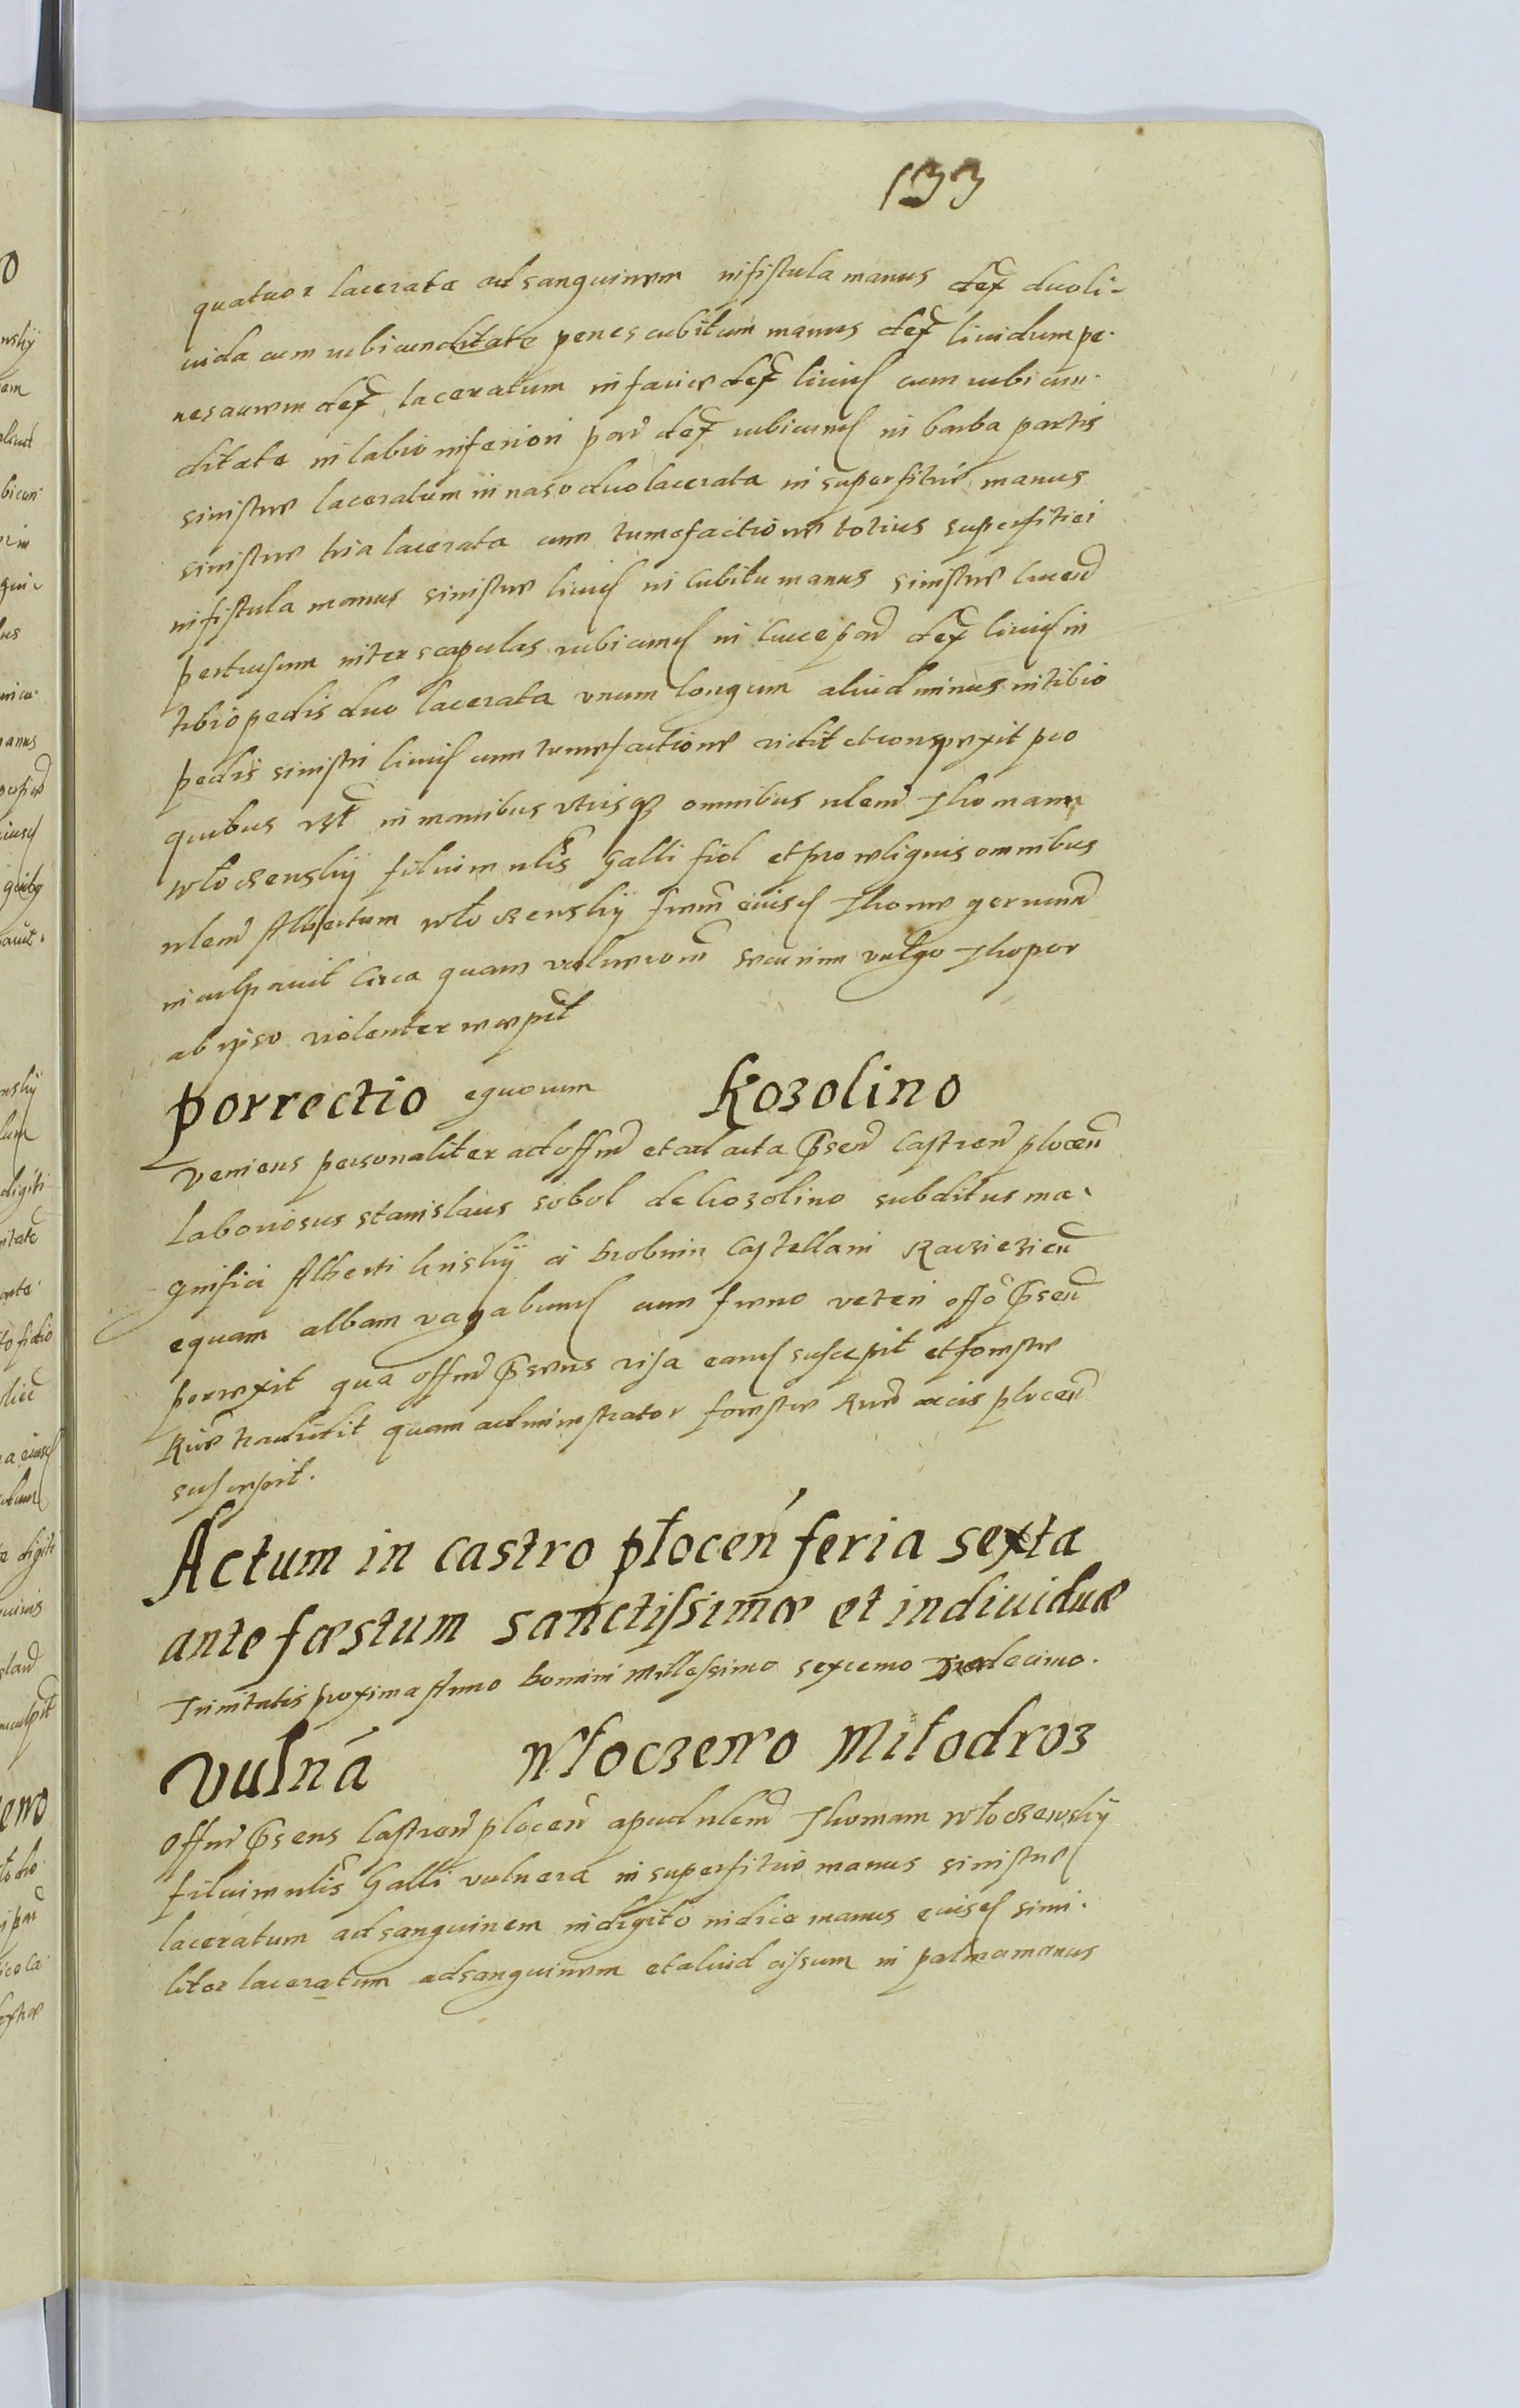 133
quatuor lacerata ad sanguinem in fistula manus dex duo li-
uida cum rubicunditate penes cubitum manus dex liuidum pe-
nes aurem dex laceratum in facie dex liuid cum rubicun-
ditate in labio inferiori par dex rubicund in barba partis
sinistre laceratum in naso duo lacerata in superfitie manus
sinistre tria lacerata cum tumefactione totius superfitiei
in fistula manus sinistre liuid in cubitu manus sinistre
pertusum inter scapulas rubicund in par dex liuid in
tibio pedis duo lacerata vnum longum aliud minus in tibio
pedis sinistri liuid cum tumefactione vidit et conspexit pro
quibus in manibus vtrisq omnibus nlem Thomam
Włoczewskÿ filium nlis Galli et pro reliquis omnibus
nlem Albertum Włoczewskÿ frem eiusd Thome german
inculpauit Circa quam vulnerom securim vulgo Thopor
ab ipso violenter recepit
Porrectio equorum Kozolino
Veniens personaliter ad offm et ad acta Psen Castren plocen
Laboriosus Stanislaus Sobol de Kozolino subditus ma-
gnifici Alberti a Krobnin Castellani Raciezien
equam albam vagabund cum freno veteri offo Psen
porrexit qua offm Psens visa eand suscepit et
tradidit quam administrator arcis plocen
suscepit.
Actum in Castro płocen feria sexta
ante fæstum Sanctissimæ et indiuiduæ
Trinitatis proxima Anno Domini Millessimo sexcemo
Vulna Włoczewo Miłodroz
Offm Psens Castren plocen apud nlem Thomam Włoczewskÿ
filium nlis Galli vulnera in superfitie manus sinistre
laceratum ad sanguinem in digito indice manus eiusd simi-
liter laceratum ad sanguinem et aliud cisum in palma manus